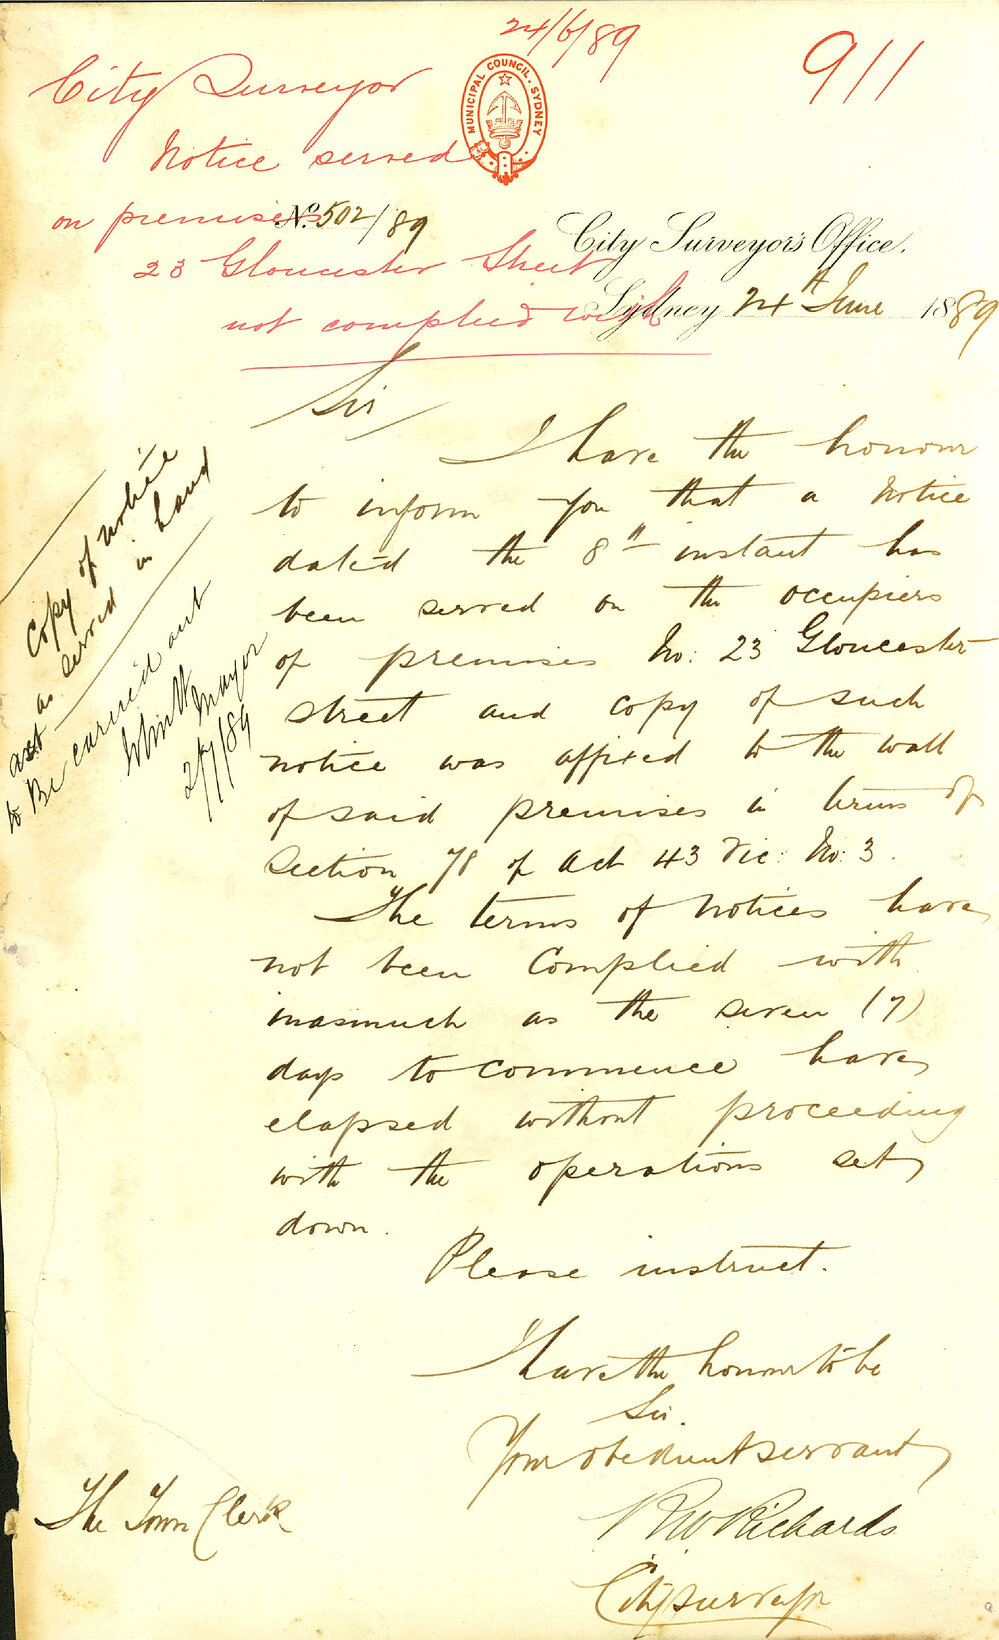 24/6/89
911
City Surveyor
Notice served
on premises
23 Gloucester Street
not complied with
MUNICIPAL COUNCIL. SYDNEY
No. 502/89
City Surveyor's Office.
Sydney 24th June 1889
Sir
I have the honour
to inform you that a Notice
dated the 8th instant has
been served on the occupiers
of premises No: 23 Gloucester
street and copy of such
notice was affixed to the wall
of said premises in terms of
Section 78 of Act 43 Vic: No: 3.
The terms of Notices have
not been Complied with
inasmuch as the seven (7)
days to commence have
elapsed without proceeding
with the operations set
down.
Please instruct.
I have the honour to be
Sir.
Your obedient servant
RW Richards
City surveyor
The Town Clerk
Copy of notice
as served in hand
Act
to Be carried out
Mayor
2/7/89